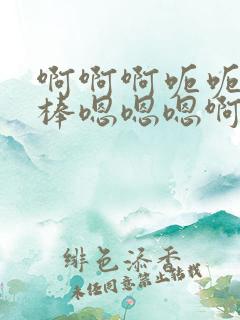 啊啊啊呃呃
棒嗯嗯嗯啊
绯色添香
未经同意禁止转载